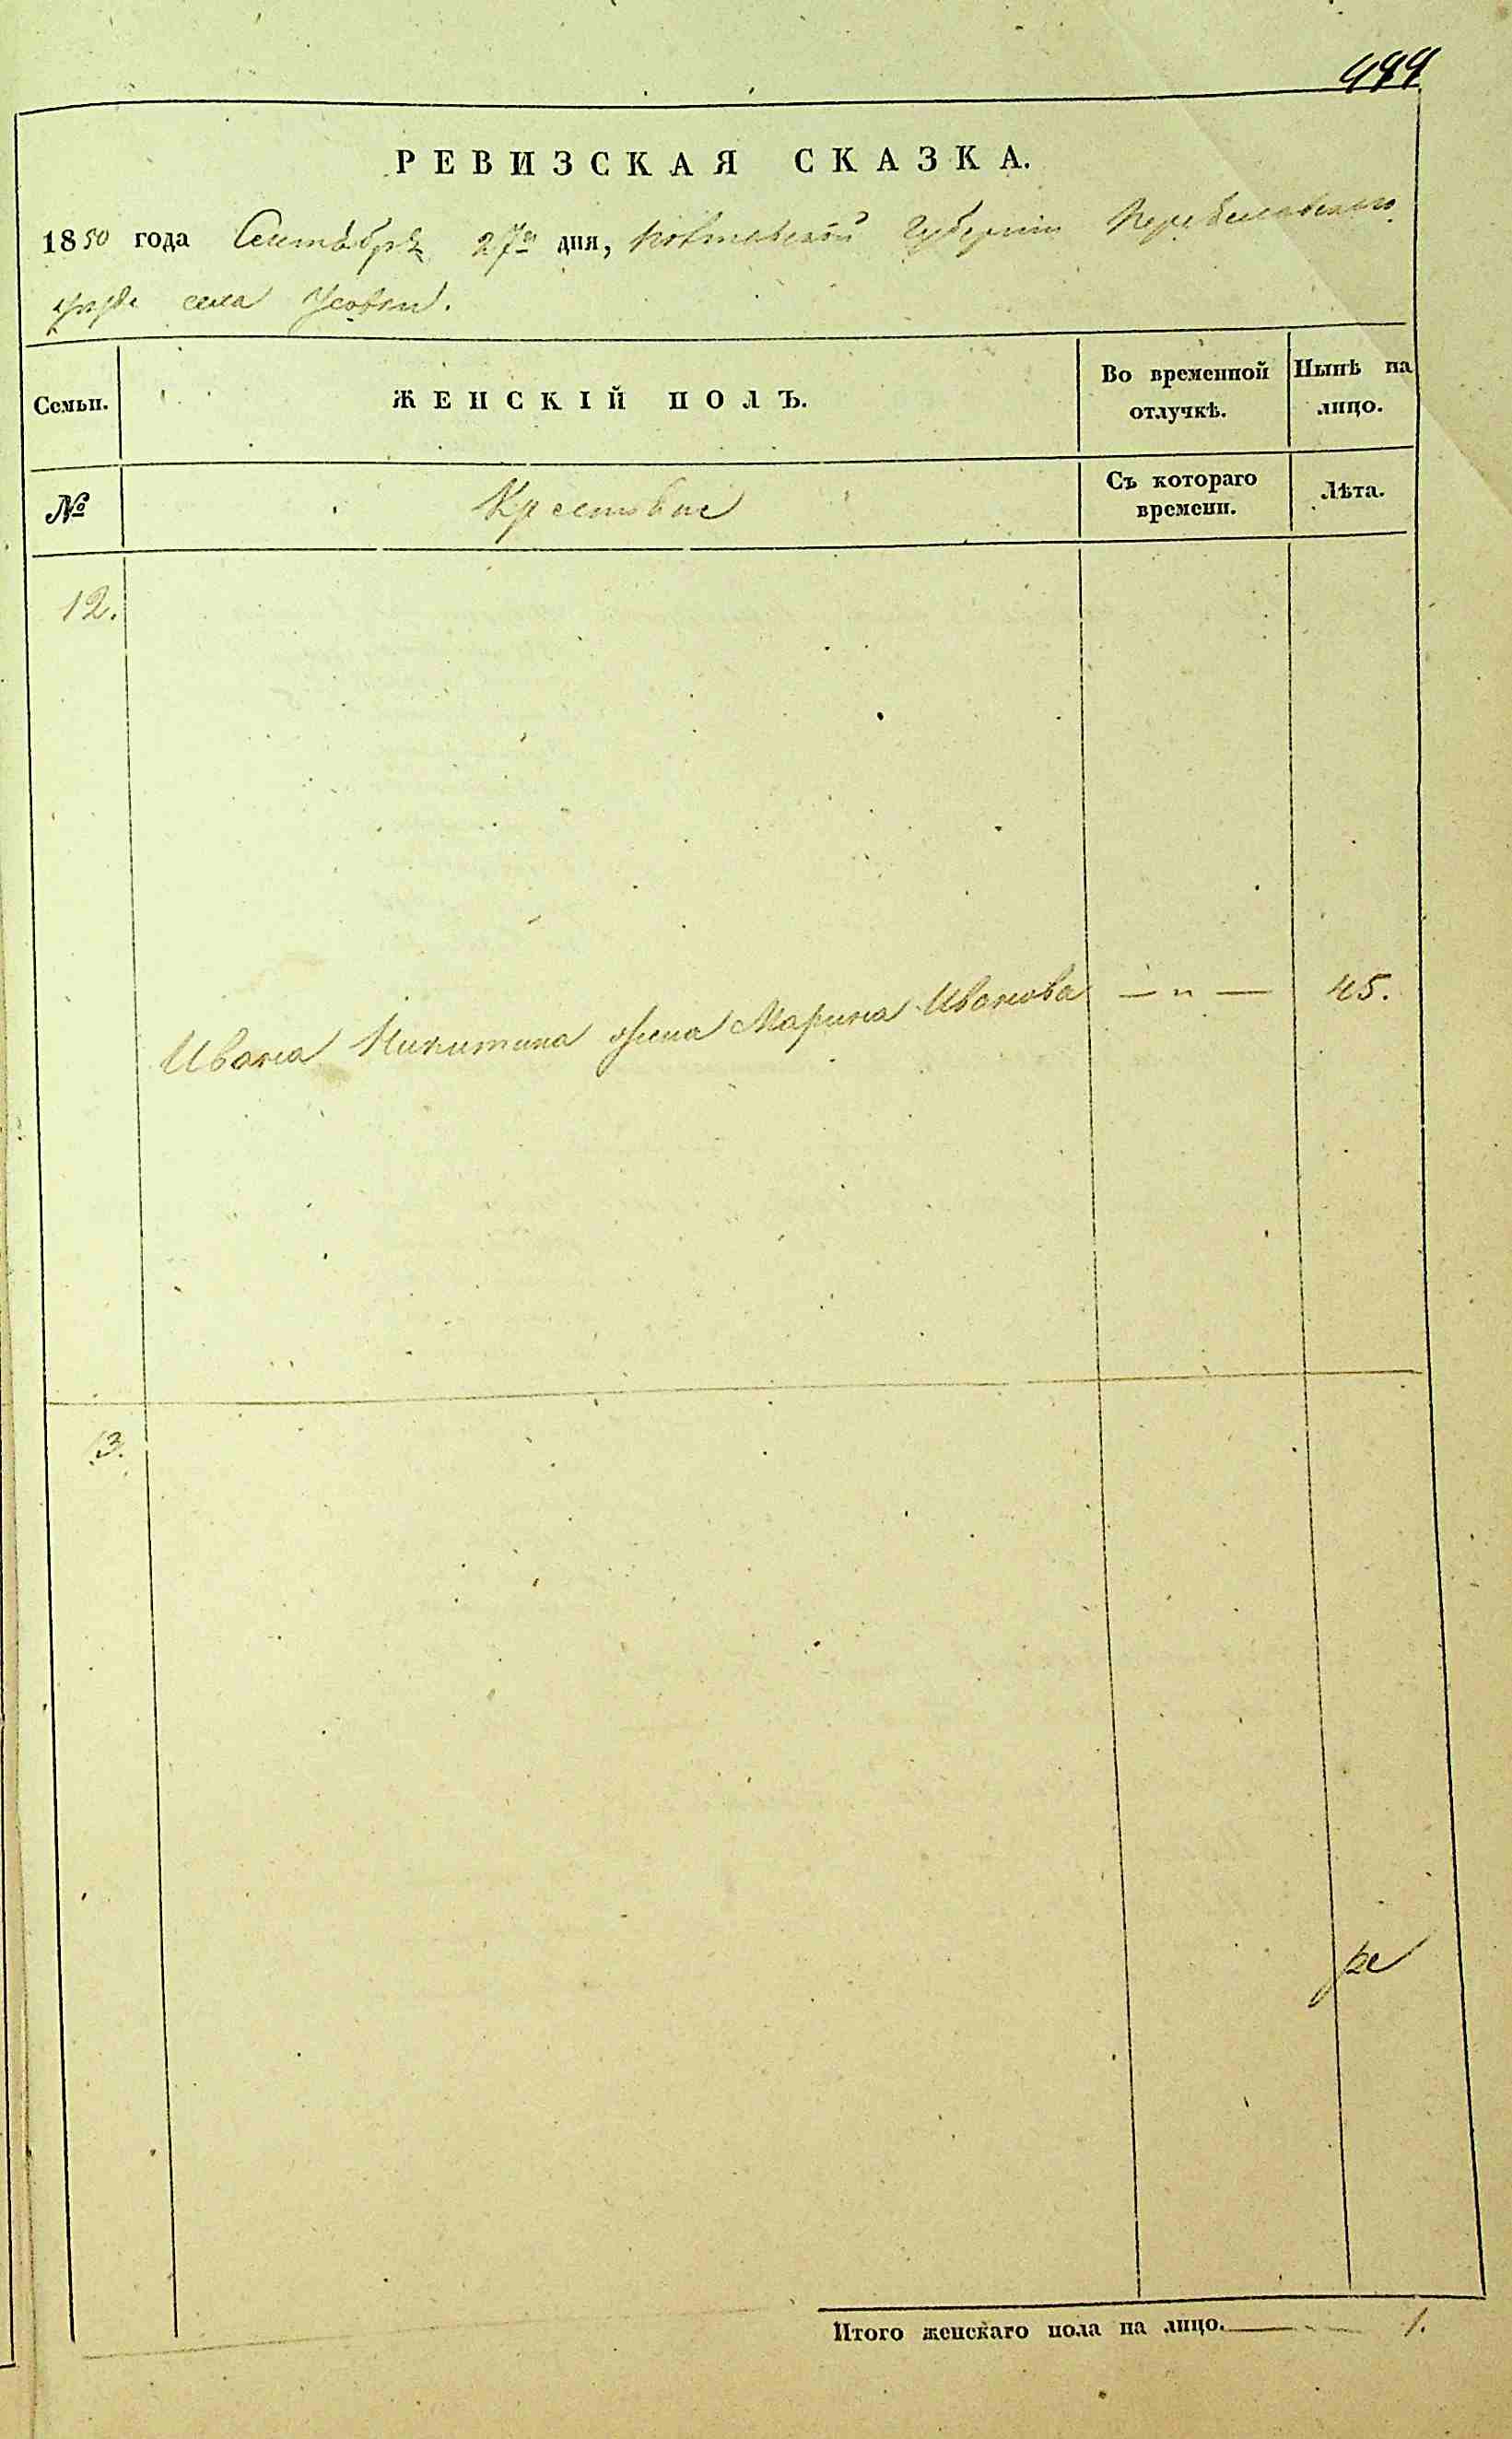 РЕВИЗСКАЯ СКАЗКА.
1850 года Сентября 27го дня, Полтавской Губернiи Переяславского
уезда села Усовки.
Семьи.
ЖЕНСКІЙ ПОЛЪ.
Во временной
отлучкѣ.
Нынѣ на
лицо.
№
Крестьяне
Съ котораго
времени.
Лѣта.
12.
Ивана Никитина жена Марина Иванова — „ — 45.
13.
Итого женскаго пола на лицо. 1.